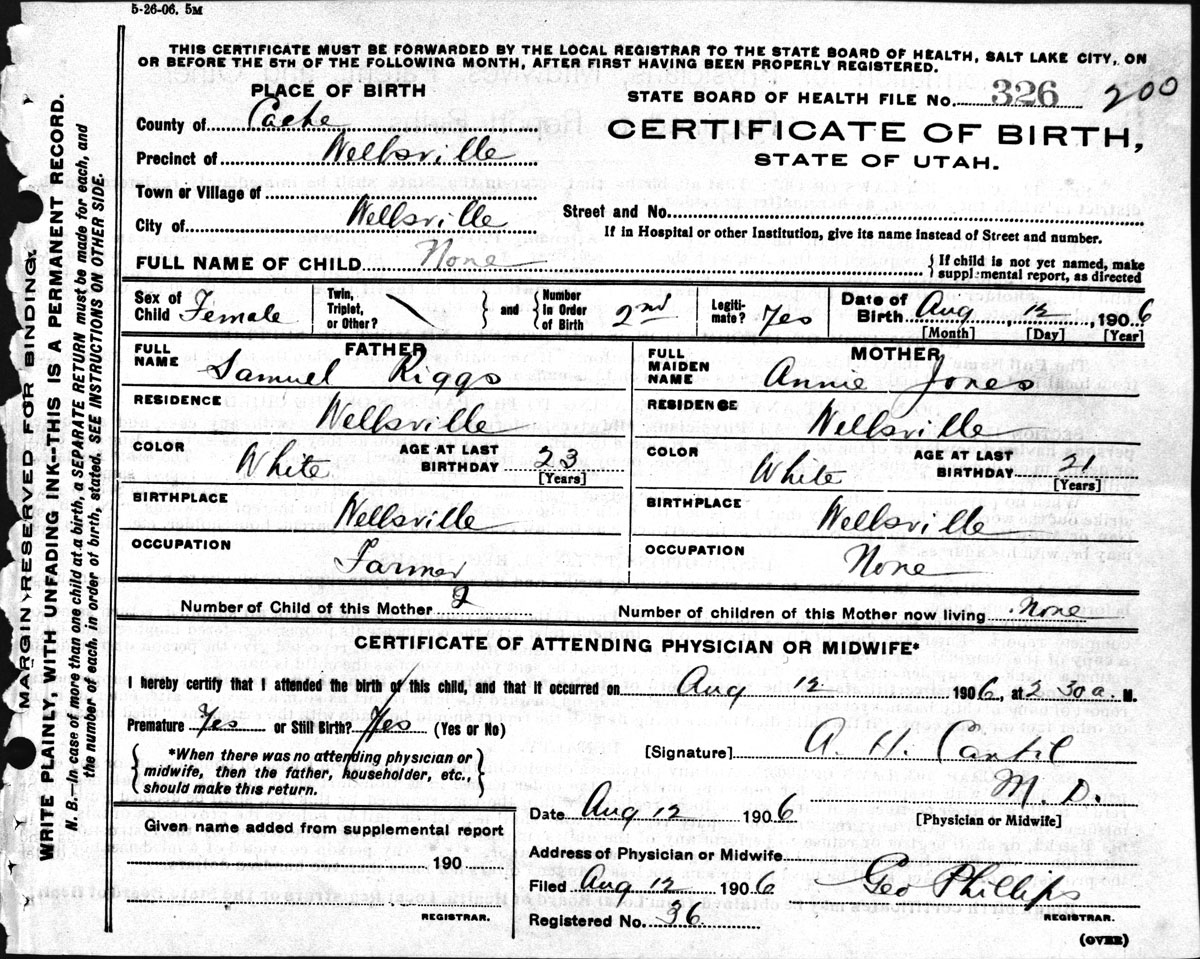 5-26-06. 5M
THIS CERTIFICATE MUST BE FORWARDED BY THE LOCAL REGISTRAR TO THE STATE BOARD OF HEALTH, SALT LAKE CITY, ON
OR BEFORE THE 5TH OF THE FOLLOWING MONTH, AFTER FIRST HAVING BEEN PROPERLY REGISTERED.
PLACE OF BIRTH
STATE BOARD OF HEALTH FILE No. 326 200
County of Cache
CERTIFICATE OF BIRTH,
Precinct of Wellsville
STATE OF UTAH.
Town or Village of
City of Wellsville
Street and No.
If in Hospital or other Institution, give its name instead of Street and number.
FULL NAME OF CHILD None
{ If child is not yet named, make
supplemental report, as directed
Sex of Child Female
Twin, Triplet, or Other? \
} and { Number in Order of Birth 2nd
Legiti-mate? Yes
Date of Birth Aug 12, 1906
[Month] [Day] [Year]
FATHER
FULL NAME Samuel Riggs
RESIDENCE Wellsville
COLOR White
AGE AT LAST BIRTHDAY 23
[Years]
BIRTHPLACE Wellsville
OCCUPATION Farmer
MOTHER
FULL MAIDEN NAME Annie Jones
RESIDENCE Wellsville
COLOR White
AGE AT LAST BIRTHDAY 21
[Years]
BIRTHPLACE Wellsville
OCCUPATION None
Number of Child of this Mother 2
Number of children of this Mother now living None
CERTIFICATE OF ATTENDING PHYSICIAN OR MIDWIFE*
I hereby certify that I attended the birth of this child, and that it occurred on Aug 12 1906, at 2 30 a. M.
Premature Yes or Still Birth? Yes (Yes or No)
{ *When there was no attending physician or
midwife, then the father, householder, etc.,
should make this return. }
[Signature] A. H.
M. D.
Date Aug 12 1906
[Physician or Midwife]
Given name added from supplemental report
190
REGISTRAR.
Address of Physician or Midwife
Filed Aug 12 1906 Geo Phillips
REGISTRAR.
Registered No. 36
(OVER)
MARGIN RESERVED FOR BINDING.
WRITE PLAINLY, WITH UNFADING INK--THIS IS A PERMANENT RECORD.
N. B.—In case of more than one child at a birth, a SEPARATE RETURN must be made for each, and
the number of each, in order of birth, stated. SEE INSTRUCTIONS ON OTHER SIDE.